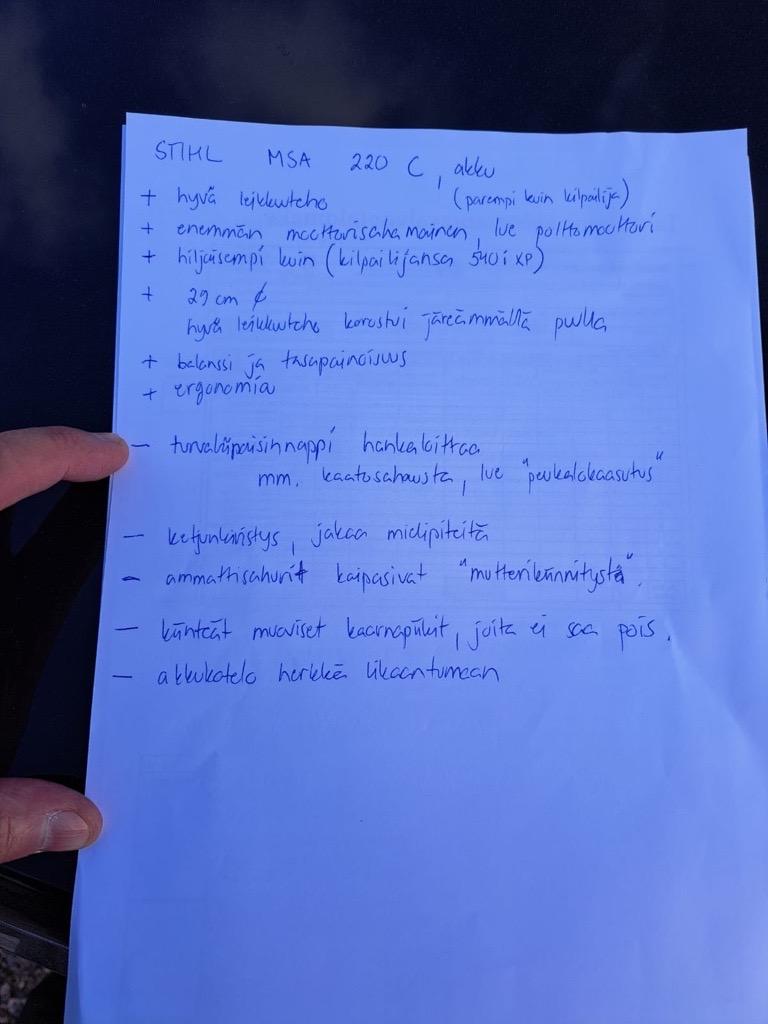 STIHL MSA 220 C, akku
+ hyvä leikkuuteho (parempi kuin kilpailija)
+ enemmän moottorisahamainen, lue polttomoottori
+ hiljaisempi kuin (kilpailijansa 540i XP)
+ 29 cm ¢
hyvä leikkuuteho korostui järeämmällä puulla
+ balanssi ja tasapainoisuus
+ ergonomia
- turvaliipaisinnappi hankaloittaa
mm. kaatosahausta, lue "peukalokaasutus"
- ketjunkiristys, jakaa mielipiteitä
- ammattisahurit kaipasivat "mutterikiinnitystä".
- kiinteät muoviset kaarnapiikit, joita ei saa pois.
- akkukotelo herkkä likaantumaan